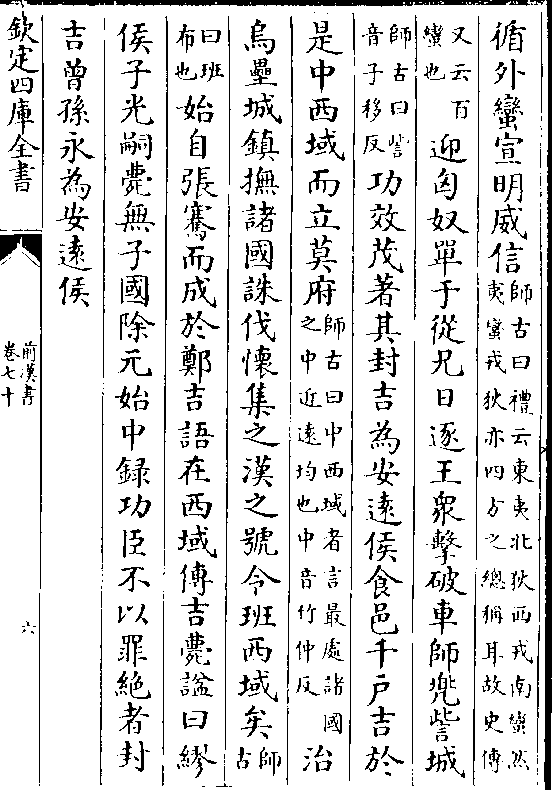 循外蠻宣明威信師古曰禮云東夷北狄西戎南蠻然夷蠻戎狄亦四方之總稱耳故史傳
又云百蠻也迎匈奴單于從兄日逐王衆擊破車師兠訾城
師古曰訾音子移反功效茂著其封吉為安逺侯食邑千戸吉於
是中西域而立莫府師古曰中西域者言最處諸國之中近逺均也中音竹仲反治
烏壘城鎮撫諸國誅伐懷集之漢之號令班西域矣師古
曰班布也始自張騫而成於鄭吉語在西域傳吉薨諡曰繆
侯子光嗣薨無子國除元始中録功臣不以罪絶者封
吉曾孫永為安逺侯
欽定四庫全書
前漢書
卷七十
六